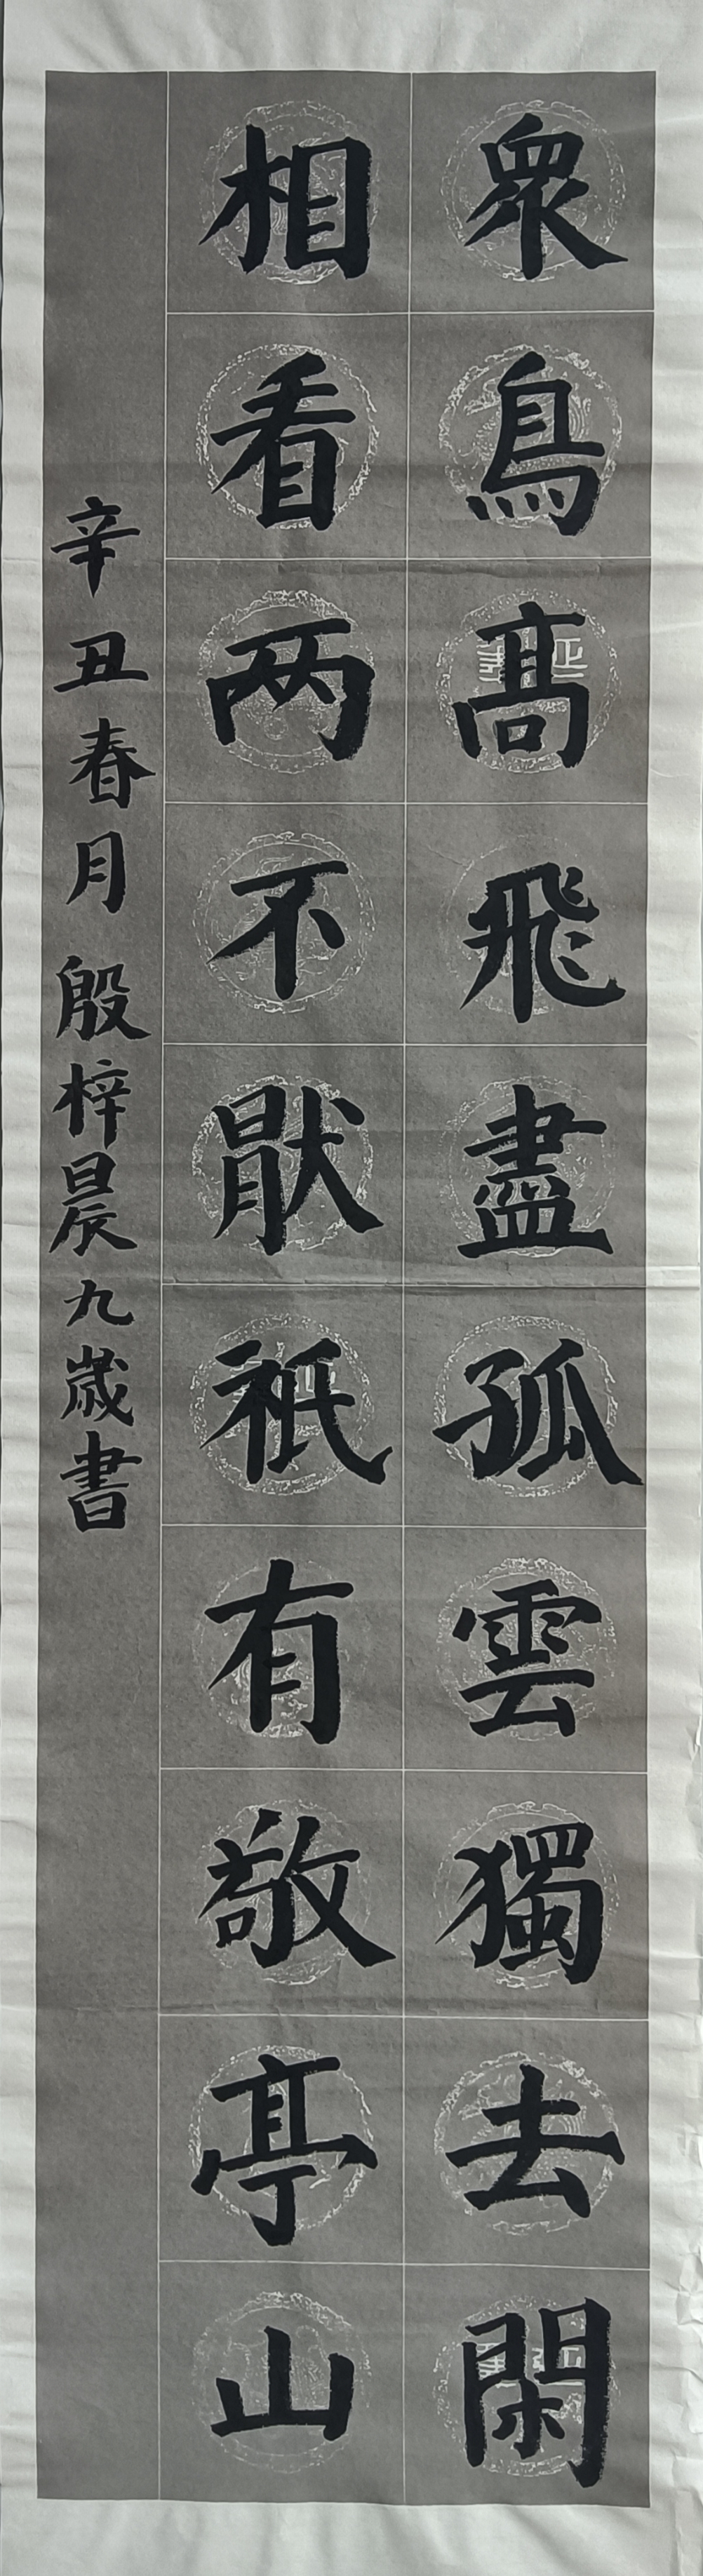 衆鳥髙飛盡孤雲獨去閑
相看两不猒祇有敬亭山
辛丑春月殷梓晨九歲書